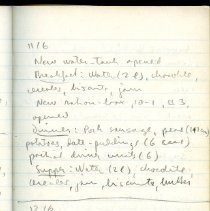 11/6
New water-tank opened
Breakfast: Water (2 l), chocolate,
biscuits, jam
New ration-box, 10-1, # 3,
opened
Dinner: Pork sausage, peas (1 tin)
potatoes, date-puddings (6 cans)
partial dining units (6)
Supper: Water (2 l), chocolate
jam biscuits, butter
12/6